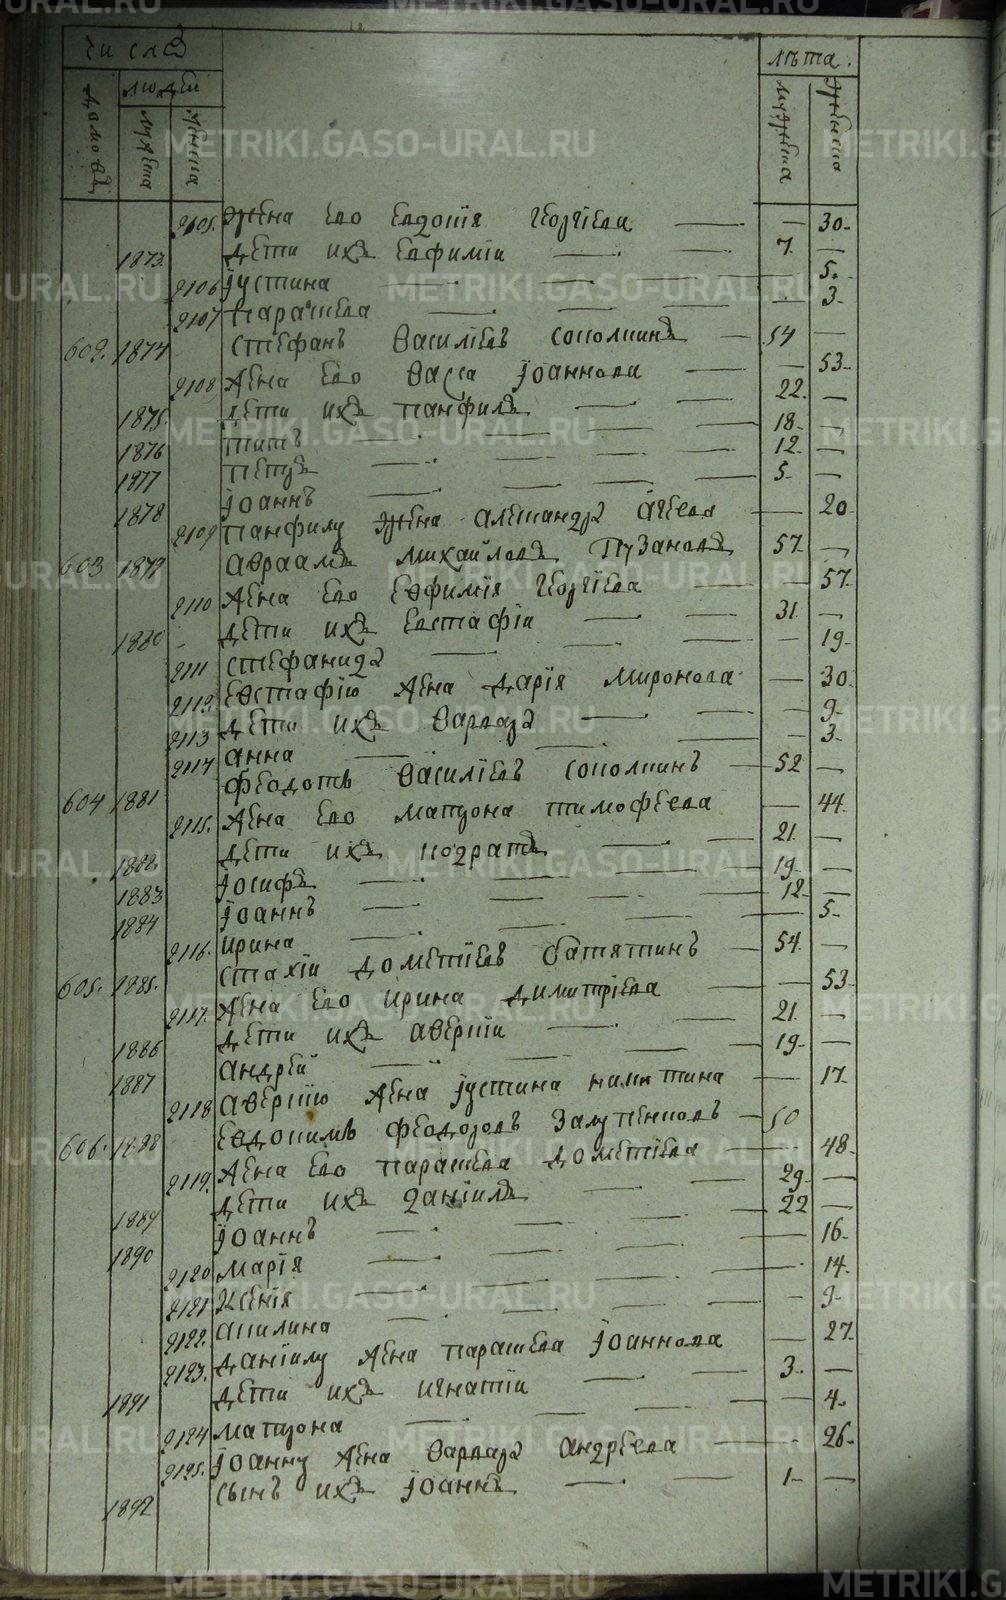 число лѣта.
домовъ людей мужеска женска
мужеска женска
2105. Жена его Евдокія Георгіева — — 30.
1873. дети ихъ Евфимій — 7. —
2106 Іустина — — 5.
2107 Парасковa — — 3.
602. 1874 Стефанъ Василіевъ Соколкинъ — 54 —
2108 Жена его Васса Іоаннова — — 53.
1875. дети ихъ Панфилъ — 22. —
1876 Титъ — 18. —
1877 Петръ — 12. —
1878 Іоаннъ — 5. —
2109 Панфилу жена Александра Агѣева — — 20
603 1879 Авраамъ Михайловъ Пузановъ 57. —
2110 Жена его Евфимія Георгіева — — 57.
1880 дети ихъ Евстафій — 31. —
2111 Стефанида — — 19.
2112 Евстафію жена Дарія Миронова — 30.
2113 дети ихъ Варвара — — 9.
2114 Анна — — 3.
604 1881 Феодотъ Василіевъ Соколкинъ — 52 —
2115. Жена его Матрона Тимофѣева — 44.
1882. дети ихъ Кодратъ — 21. —
1883 Іосифъ — 19. —
1884 Іоаннъ — 12. —
2116. Ирина — — 5.
605. 1885. Стахій Дометіевъ Батятинъ — 54. —
2117. Жена его Ирина Димитріева — — 53.
1886 дети ихъ Аверкій — 21. —
1887 Андрей — 19. —
2118 Аверкію жена Іустина Никитина — 17.
606. 1888 Евдокимъ Феодоровъ — 50
2119. Жена его Парасковa Дометіева — — 48.
1889 дети ихъ Даніилъ — 29. —
1890 Іоаннъ — 22 —
2120 Марія — — 16.
2121 Ксенія — — 14.
2122. Акилина — — 9.
2123. Даніилу жена Парасковa Іоаннова — 27.
1891 дети ихъ Игнатій — 3. —
2124 Матрона — — 4.
2125. Іоанну жена Варвара Андрѣева — — 26.
1892 сынъ ихъ Іоаннъ — 1. —
METRIKI.GASO-URAL.RU